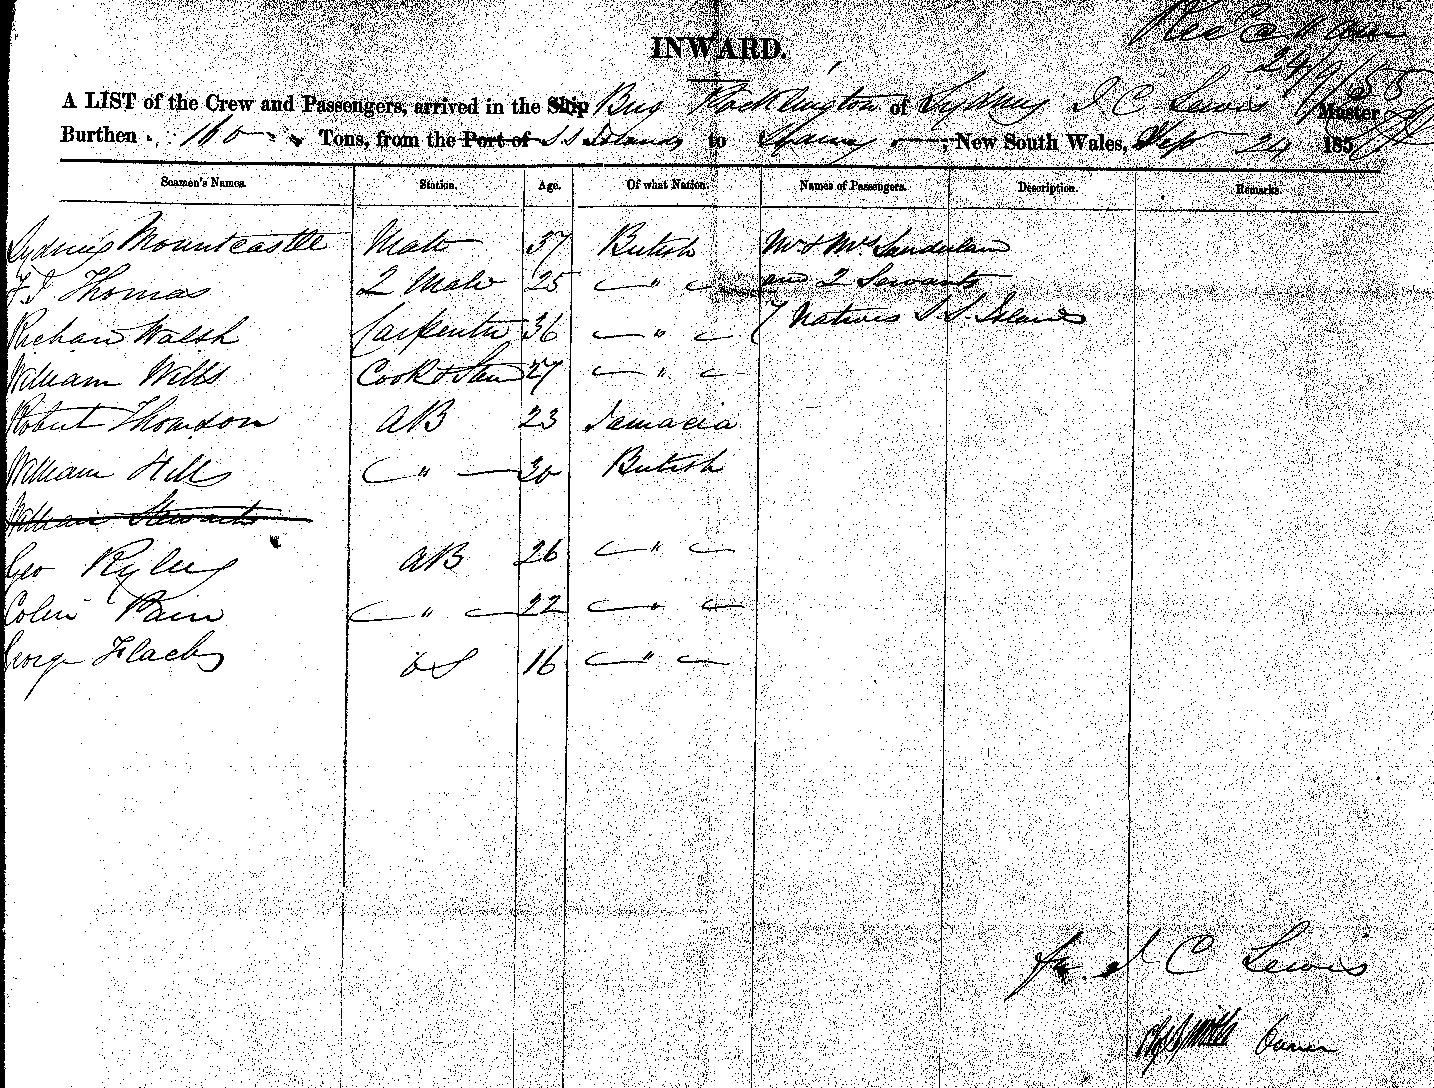 24/9/58
INWARD.
A LIST of the Crew and Passengers, arrived in the Ship Brig of Sydney J C Lewis Master
Burthen 160 Tons, from the Port of S S Islands to Sydney, New South Wales, Sep 24 185
Seamen's Names. Station. Age. Of what Nation. Names of Passengers. Description. Remarks.
Sydney Mountcastle Mate 37 British Mr & Mrs
F J Thomas 2 Mate 25 " and 2 Servants
Richan Walsh Carpenter 36 " 7 Natives S S. Islands
William Wills Cook & Stew 27 "
Robert Thomson AB 23 Jamacia
William Hills " 30 British
William Stewarts
Geo Ryley AB 26 "
Colin Bain " 22 "
George Flacks OS 16 "
for J C Lewis
Owner